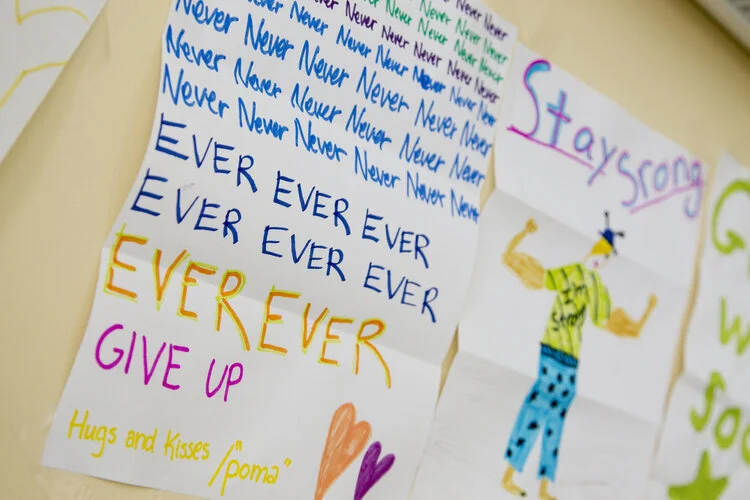 Never Never Never
Never Never Never Never
Never Never Never Never Never
Never Never Never Never Never Never
Never Never Never Never Never Never
Never Never Never Never Never Never
Never Never Never Never Never Never
EVER EVER EVER
EVER EVER EVER
EVER EVER EVER
GIVE UP
Hugs and Kisses /"poma"
Stay srong
I'm
strong
soo